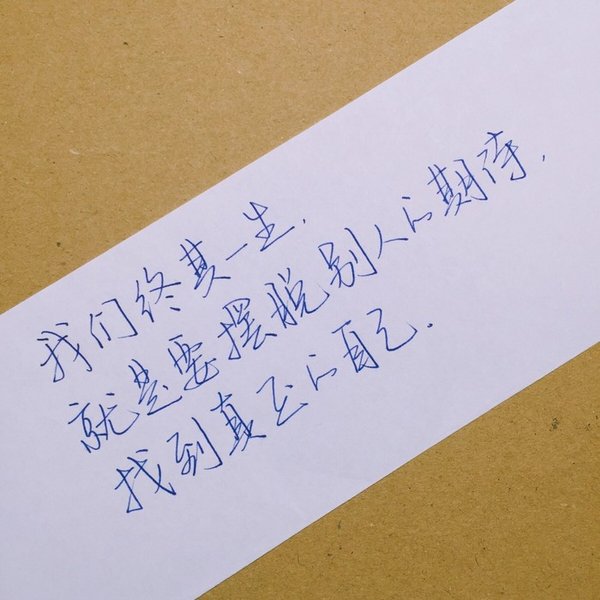 我们终其一生.
就是要摆脱别人的期待.
找到真正的自己.